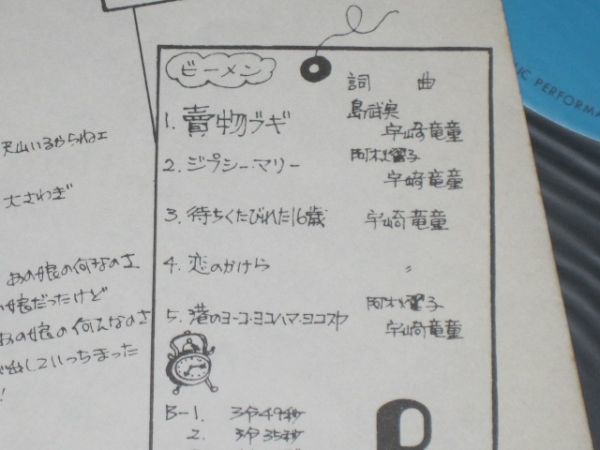 ビーメン
詞 曲
1. 賣物ブギ 島武実
宇崎竜童
2. ジプシー・マリー 阿木燿子
宇崎竜童
3. 待ちくたびれた16歳 宇崎竜童
4. 恋のかけら 〃
5. 港のヨーコ・ヨコハマ・ヨコスカ 阿木燿子
宇崎竜童
B-1. 3分49秒
2. 3分35秒
大さわぎ
あの娘の何なのさ
娘だったけど
あの娘の何んなのさ
出していっちまった
!
PERFORMA